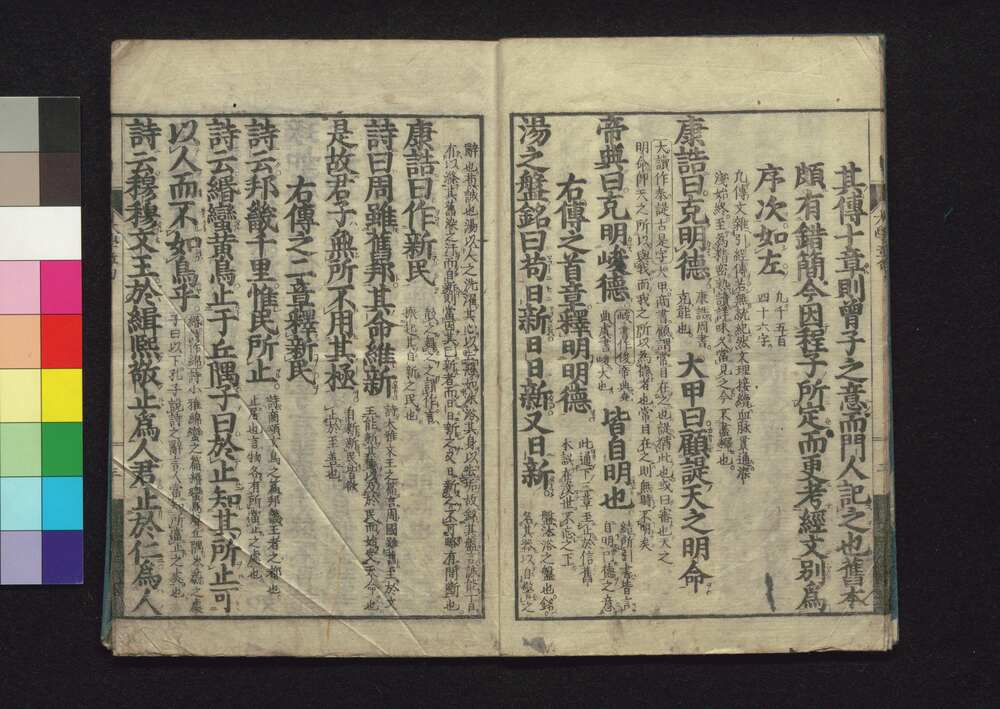 其傳十章則曾子之意而門人記之也舊本
頗有錯簡今因程子所定而更考經文別爲
序次如左 九千五百四十六字
凡傳文雜引經傳若無統紀然文理接續血脉貫通深
淺始終至爲精密熟讀詳味久當見之今不盡釋也
康誥曰克明德 康誥周書克能也 大甲曰顧諟天之明命
大讀作泰諟古是字大甲商書顧謂常目在之也諟猶此也或曰審也天之
明命即天之所以與我而我之所以爲德者也常目在之則無時不明矣
帝典曰克明峻德 峻書作俊帝典堯典虞書峻大也 皆自明也 結所引書皆言自明己德之意
右傳之首章釋明明德 此通下三章至止於信舊本誤在沒世不忘之下
湯之盤銘曰苟日新日日新又日新 盤沐浴之盤也銘名其器以自警之
辭也苟誠也湯以人之洗濯其心以去惡如沐浴其身以去垢故銘其盤言誠能一日
有以滌其舊染之汙而自新則當因其已新者而日日新之又日新之不可略有間斷也
康誥曰作新民 鼓之舞之之謂作言振起其自新之民也
詩曰周雖舊邦其命維新 詩大雅文王之篇言周國雖舊至於文王能新其德以及於民而始受天命也
是故君子無所不用其極 自新新民皆欲止於至善也
右傳之二章釋新民
詩云邦畿千里惟民所止 詩商頌玄鳥之篇邦畿王者之都也止居也言物各有所當止之處也
詩云緡蠻黃鳥止于丘隅子曰於止知其所止可
以人而不如鳥乎 緡詩作綿詩小雅綿蠻之篇緡蠻鳥聲丘隅岑蔚之處子曰以下孔子說詩之辭言人當知所當止之處也
詩云穆穆文王於緝熙敬止爲人君止於仁爲人